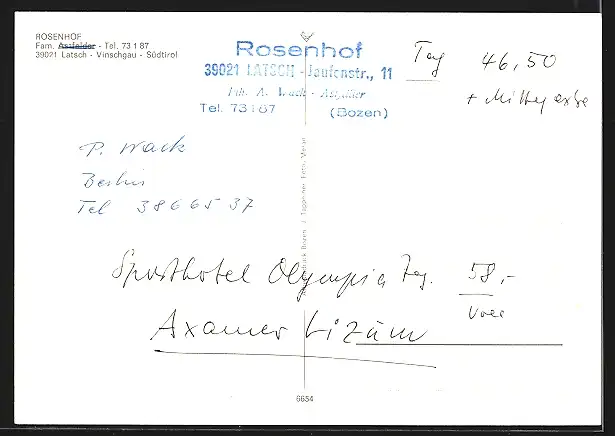 ROSENHOF
Fam. Astfelder - Tel. 73 1 87
39021 Latsch - Vinschgau - Südtirol
Rosenhof
39021 LATSCH - Jaufenstr., 11
Inh. A. Wack -
Tel. 73187 (Bozen)
Tag 46,50
+ Mittag extra
P. Wack
Berlin
Tel 3866537
Sporthotel Olympia Tag. 58,-
Axamer Lizum
6654